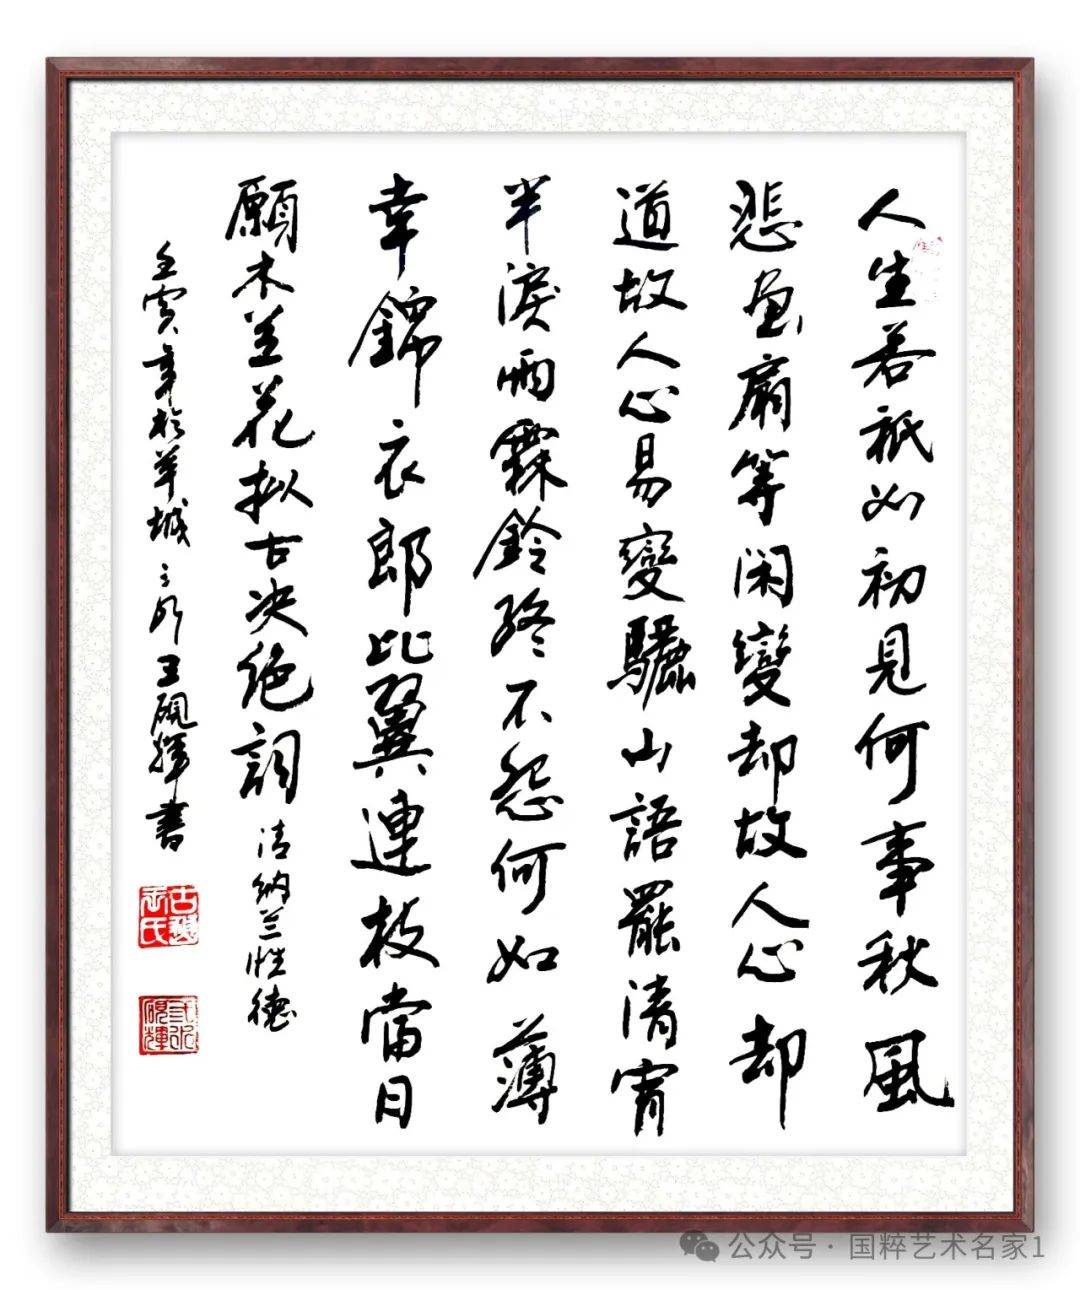 人生若祇如初見何事秋風
悲画扇等闲變却故人心却
道故人心易變驪山語罷清宵
半淚雨霖鈴終不怨何如薄
幸錦衣郎比翼連枝當日
願木兰花拟古决绝詞 清纳兰性德
壬寅年於羊城王硯輝書
硯輝
公众号 · 国粹艺术名家1